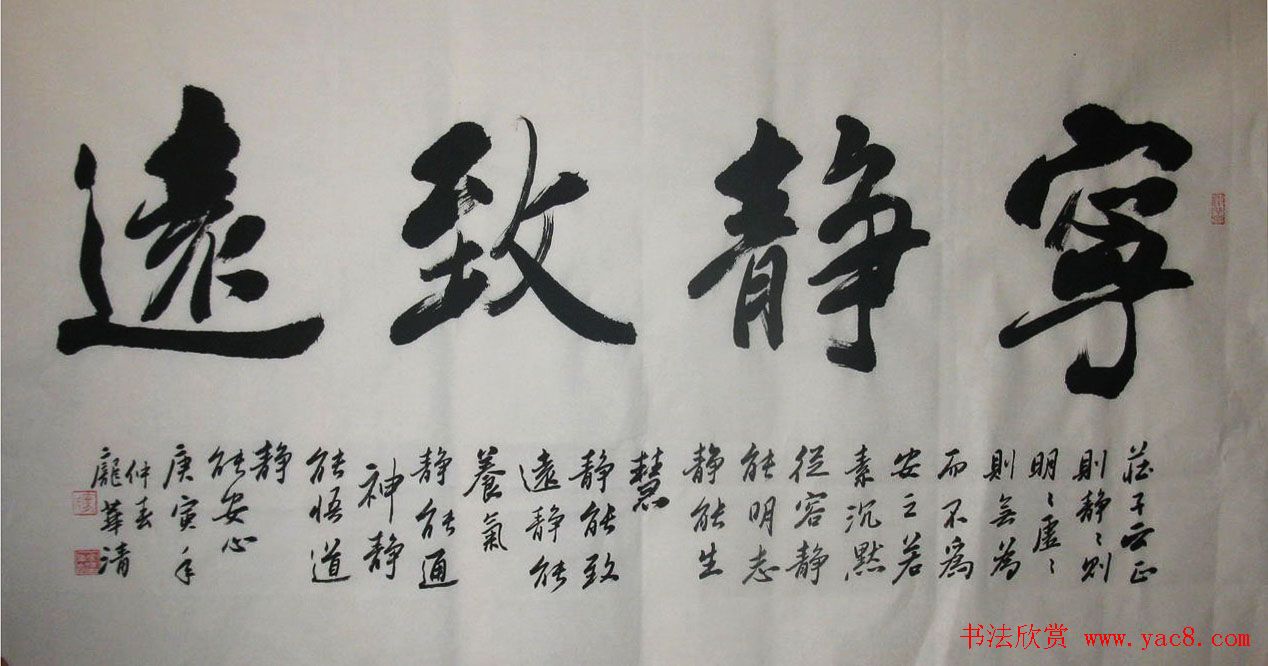 寧靜致遠
莊子云正
則静〻則
明〻虚〻
則無為
而不為
安之若
素沉默
從容静
能明志
静能生
慧
静能致
遠静能
養氣
静能通
神静
能悟道
静
能安心
庚寅年
仲春
龐華清
书法欣赏 www.yac8.com